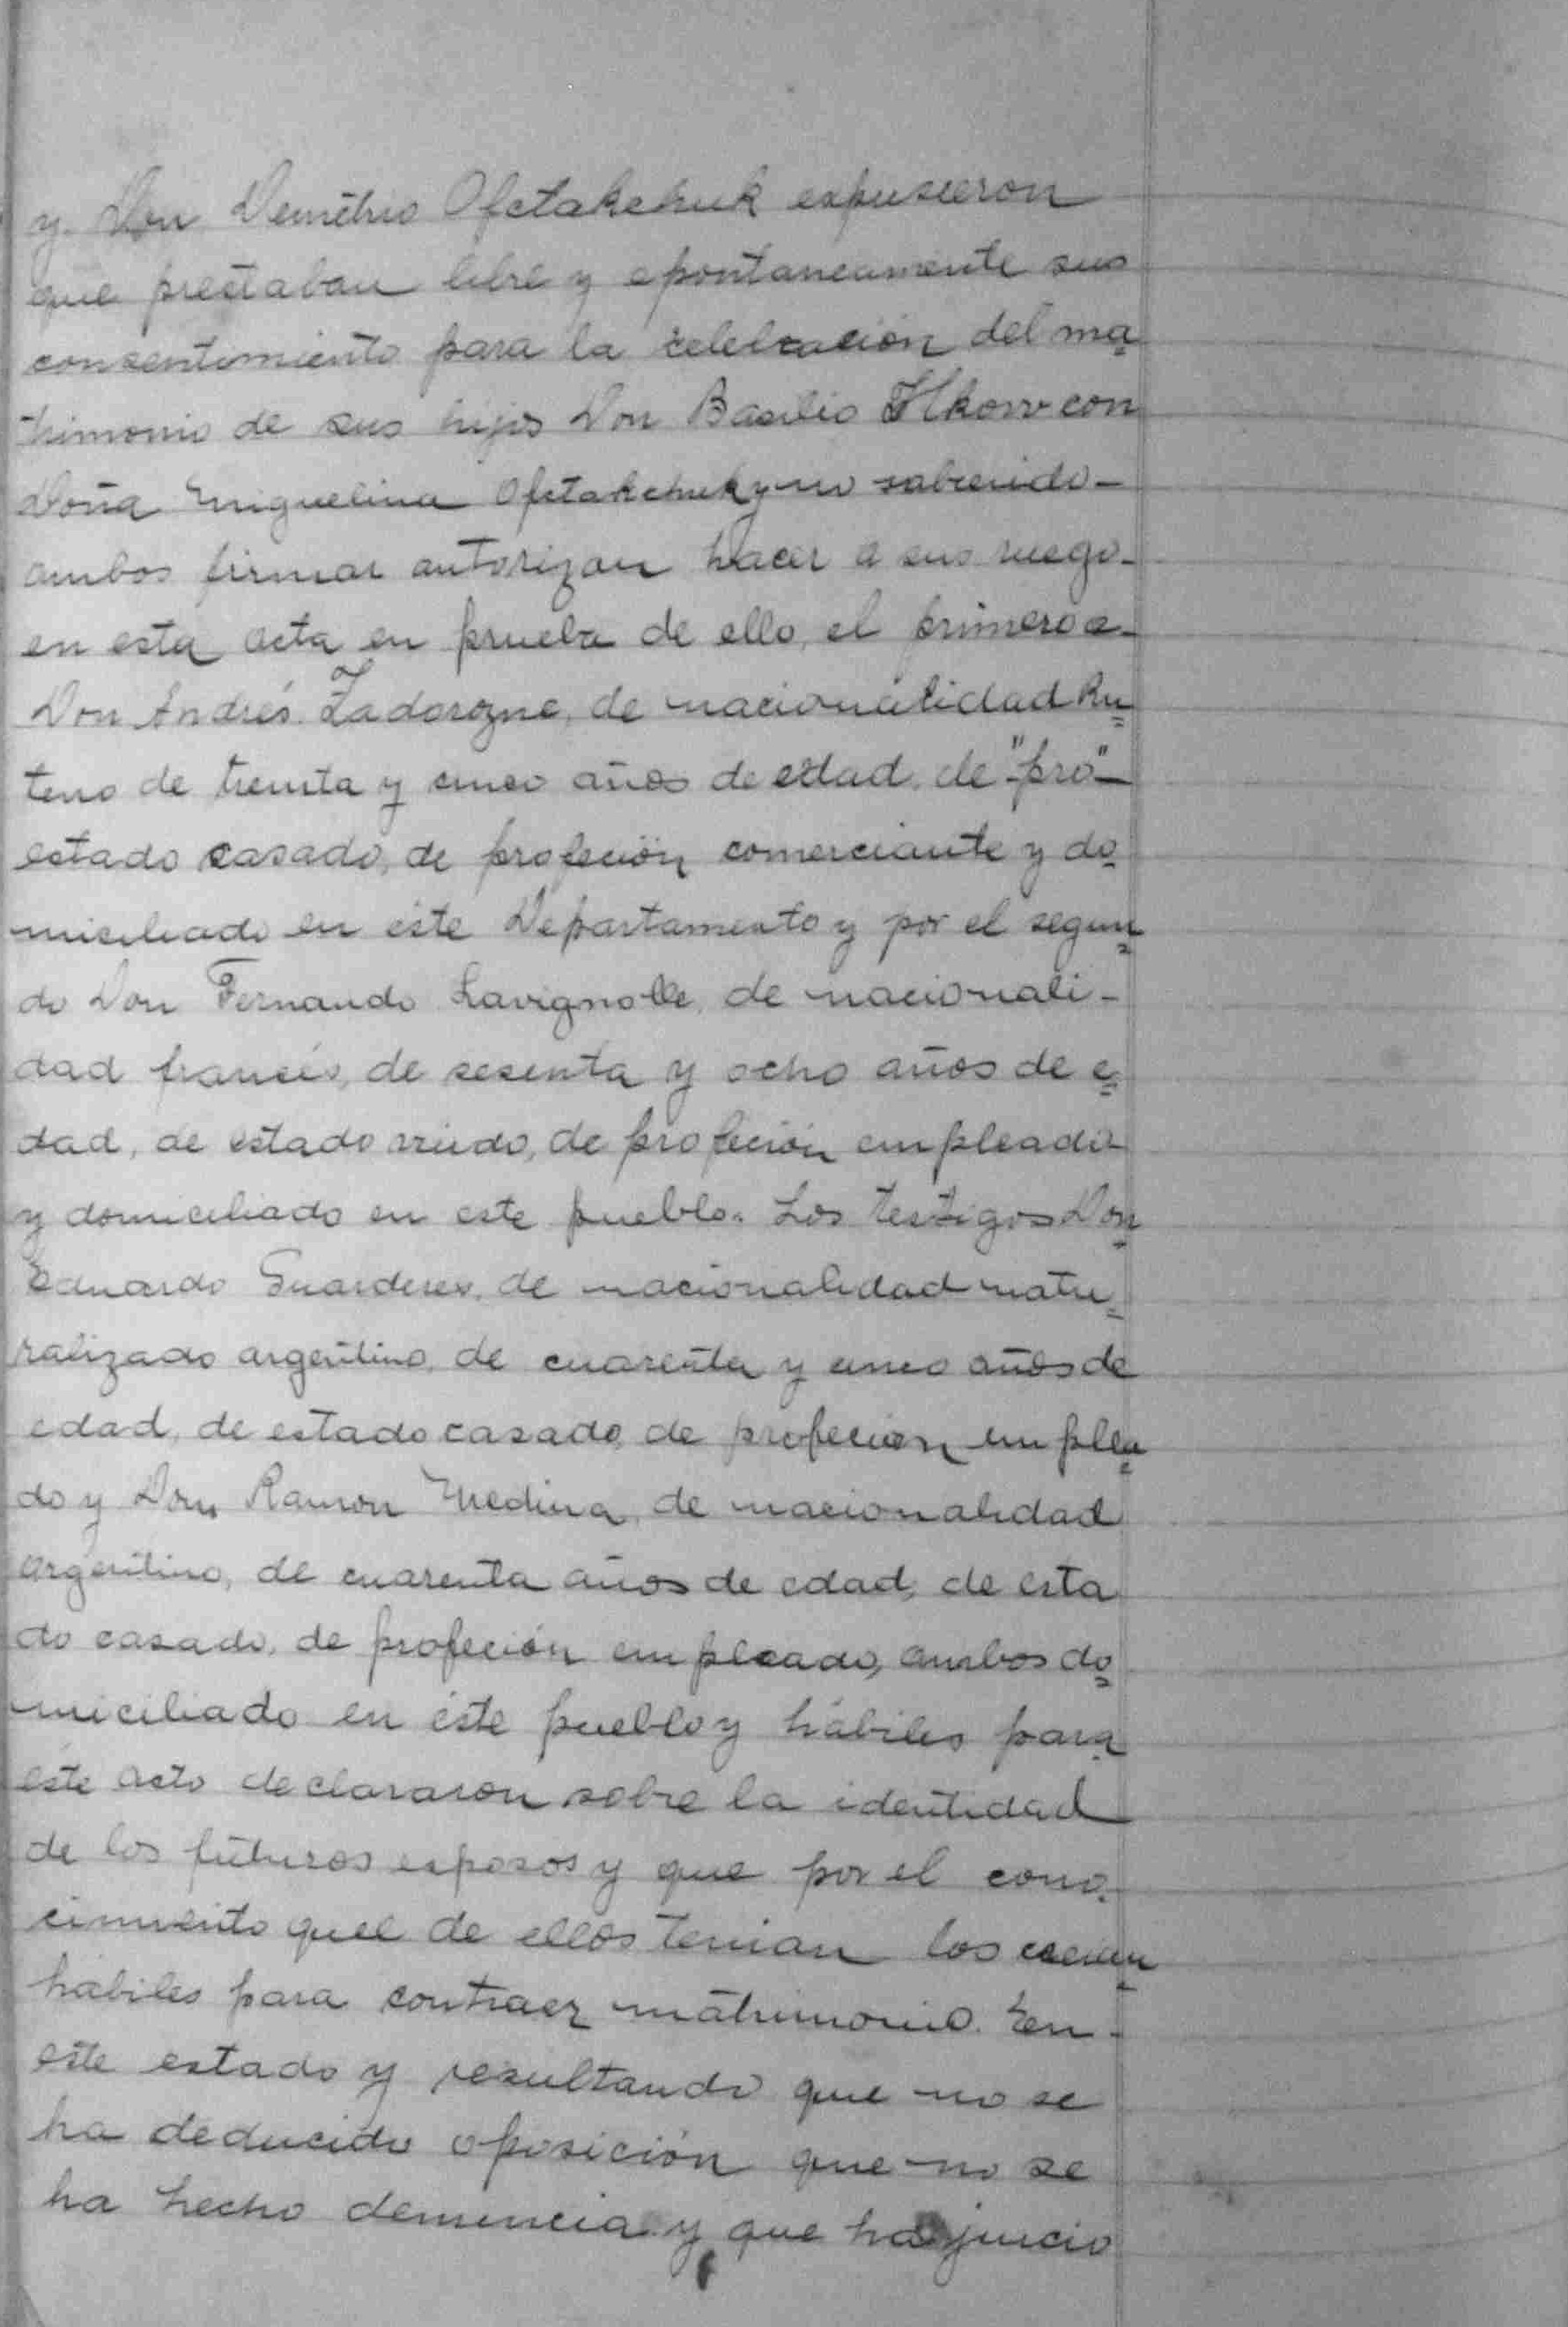 y Don Demétrio Ofctakchuk expusieron
que prestaban libre y epontaneamente sus
consentimiento para la celebración del ma
trimonio de sus hijos Don Basilio con
Doña Miguelina Ofctakchuk y no sabiendo-
ambos firmar autorizan hacer a sus ruego-
en esta acta en prueba de ello, el primero a-
Don Andrés Zadorozne, de nacionalidad Ru
teno de treinta y cinco años de edad, de "pro"-
estado casado, de profeción comerciante y do
miciliado en éste Departamento y por el segun
do Don Fernando Lavignolle, de nacionali-
dad francés, de sesenta y ocho años de e
dad, de estado viudo, de profeción empleado
y domiciliado en este pueblo. Los testigos Don
Eduardo Guarderes, de nacionalidad natu
ralizado argentino, de cuarenta y cinco años de
edad, de estado casado, de profecion emplea
do y Don Ramon Medina, de nacionalidad
argentino, de cuarenta años de edad, de esta
do casado, de profeción empleado, ambos do
miciliado en éste pueblo y hábiles para
éste acto declararon sobre la identidad
de los futuros esposos y que por el cono
cimiento quel de ellos tenian los creian
habiles para contraer matrimonio. En-
este estado y resultando que no se
ha deducido oposición que no se
ha hecho denuncia y que ha juicio